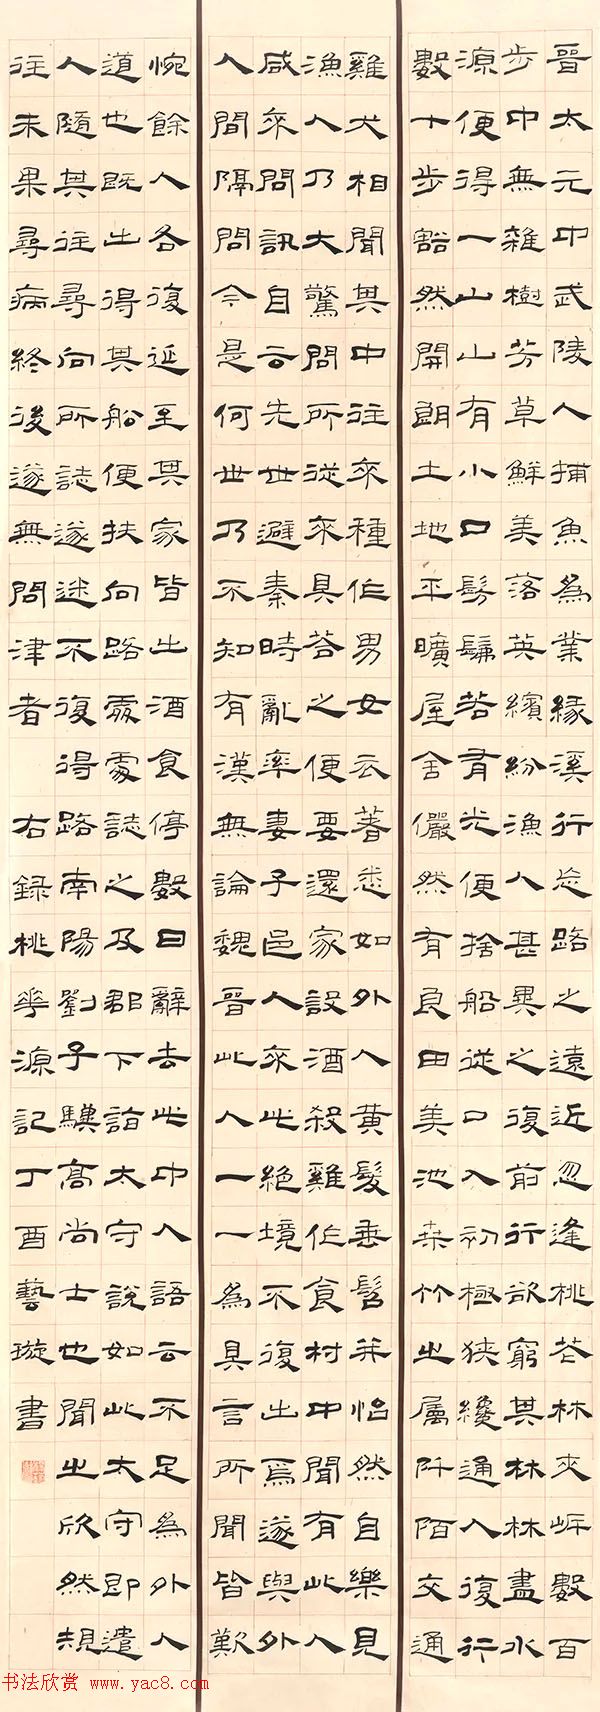 晉太元中武陵人捕魚為業緣溪行忘路之遠近忽逢桃花林夾岸數百
步中無雜樹芳草鮮美落英繽紛漁人甚異之復前行欲窮其林林盡水
源便得一山山有小口髣髴若有光便捨船從口入初極狹纔通人復行
數十步豁然開朗土地平曠屋舍儼然有良田美池桑竹之屬阡陌交通
雞犬相聞其中往來種作男女衣著悉如外人黃髮垂髫并怡然自樂見
漁人乃大驚問所從來具答之便要還家設酒殺雞作食村中聞有此人
咸來問訊自云先世避秦時亂率妻子邑人來此絕境不復出焉遂與外
人間隔問今是何世乃不知有漢無論魏晉此人一一為具言所聞皆歎
惋餘人各復延至其家皆出酒食停數日辭去此中人語云不足為外人
道也既出得其船便扶向路處處誌之及郡下詣太守說如此太守即遣
人隨其往尋向所誌遂迷不復得路南陽劉子驥高尚士也聞之欣然規
往未果尋病終後遂無問津者 右錄桃華源記丁酉藝璇書
书法欣赏 www.yac8.com